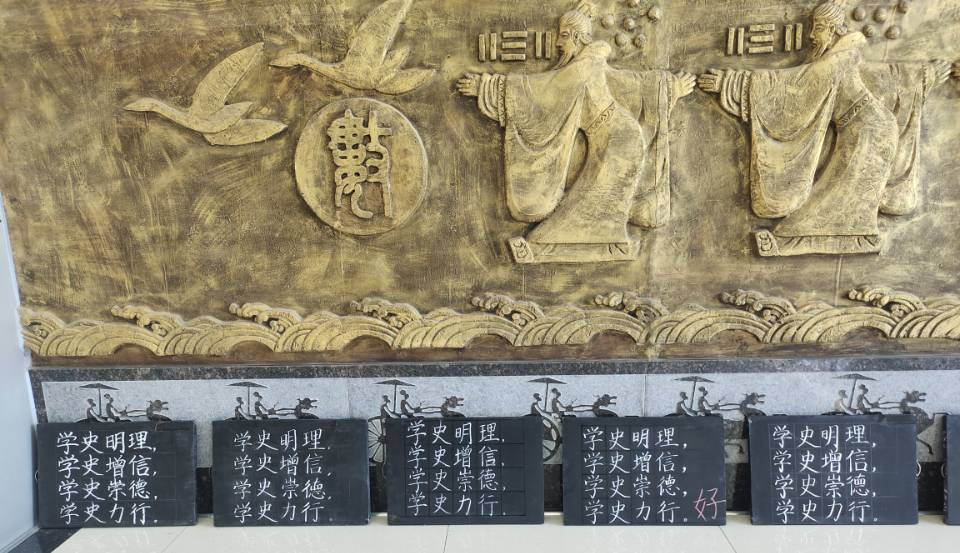 數
学史明理,
学史增信,
学史崇德,
学史力行.
学史明理,
学史增信,
学史崇德,
学史力行.
学史明理,
学史增信,
学史崇德,
学史力行.
学史明理,
学史增信,
学史崇德,
学史力行。好
学史明理,
学史增信,
学史崇德,
学史力行.